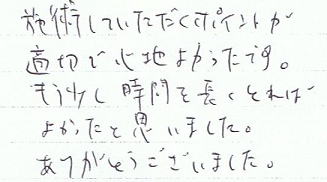 施術していただくポイントが
適切で心地よかったです。
もう少し時間を長くとれば
よかったと思いました。
ありがとうございました。